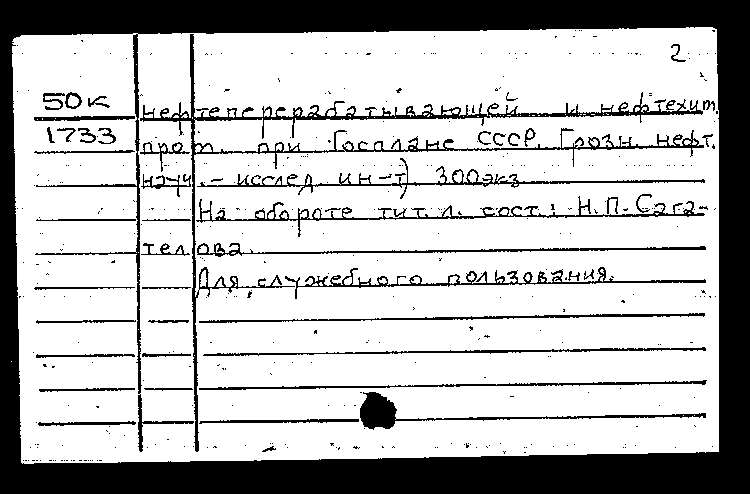 2
50к нефтеперерабатывающей и нефтехим.
1733 пром. при Госплане СССР. Грозн. нефт.
науч.-исслед. ин-т). 300экз
На обороте тит. л. сост.: Н.П.Сага-
телова.
Для служебного пользования.